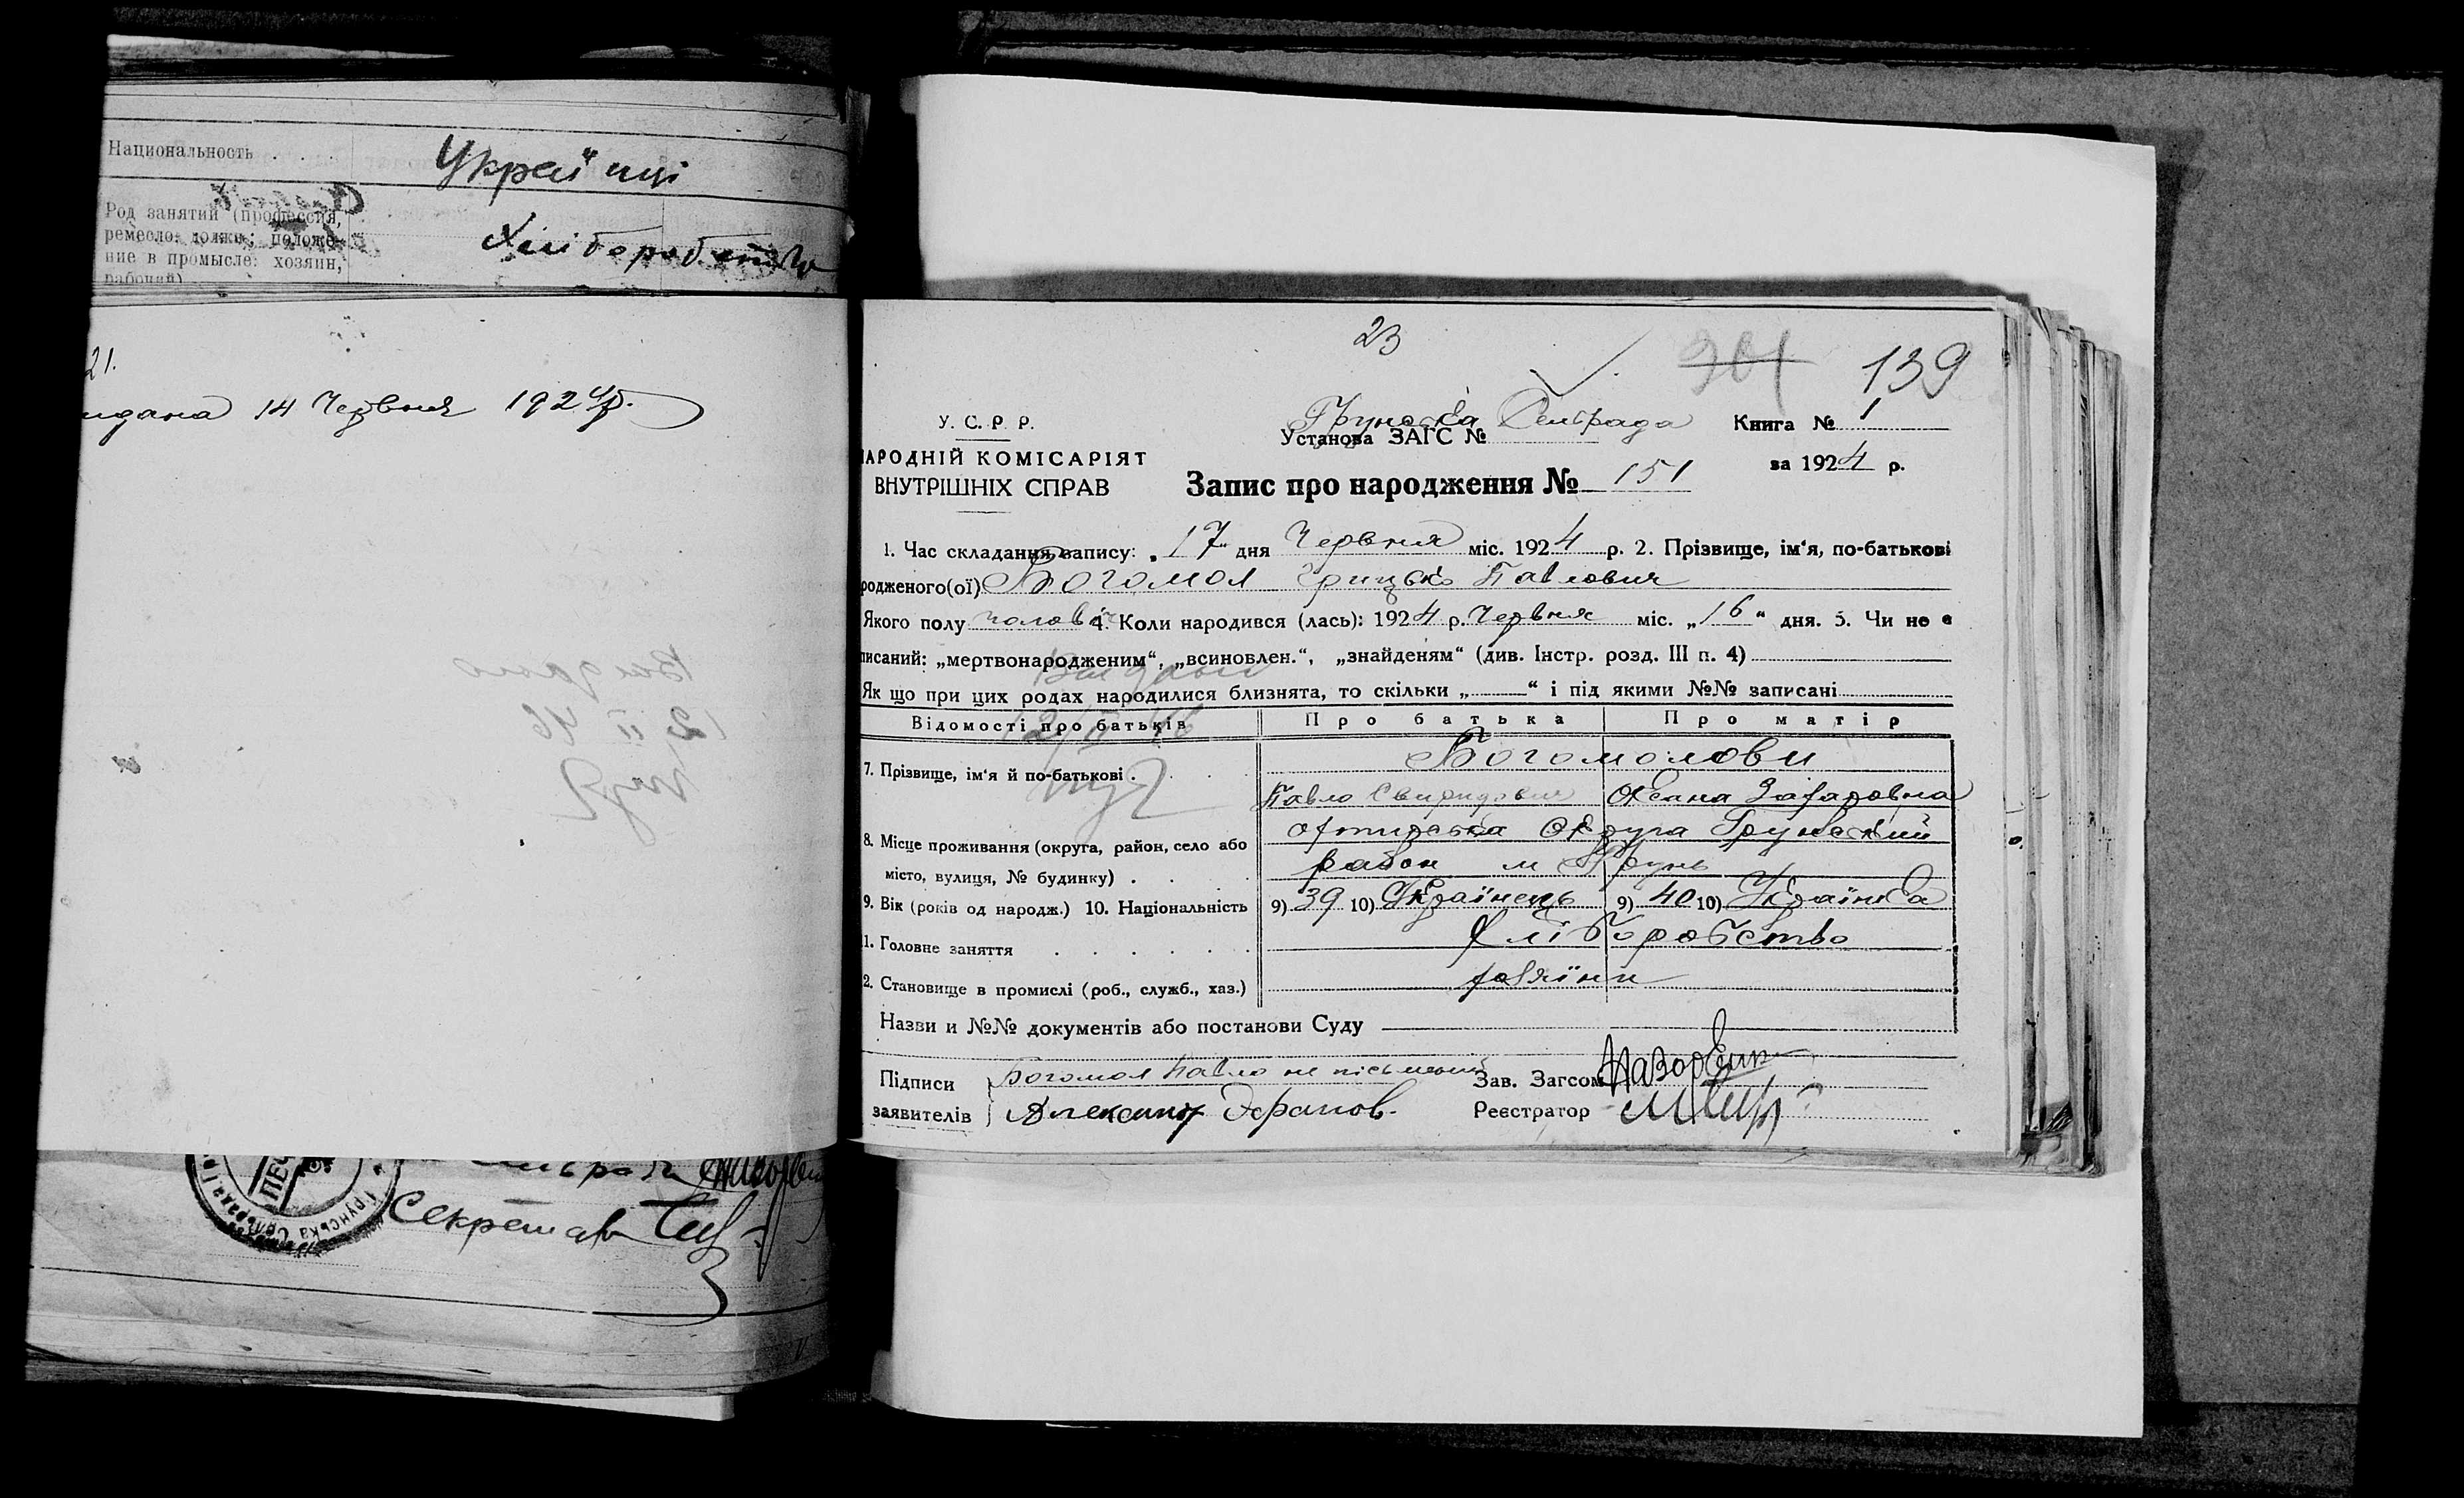 Национальность . . . .
Українці
Род занятий (профессия,
ремесло, должн; положе-
ние в промысле: хозяин,
рабочий)
Хліборобство
21.
идана 14 Червня 1924 р.
Сельрада
Секретар
23
301 139
У. С. Р. Р.
АРОДНІЙ КОМІСАРІЯТ
ВНУТРІШНІХ СПРАВ
Грунська Сельрада
Установа ЗАГС №
Книга № 1
за 1924 р.
Запис про народження № 151
1. Час складання запису: „17" дня Червня міс. 1924 р. 2. Прізвище, ім'я, по-батькові
родженого(ої) Богомол Грицько Павлович
Якого полу чоловіч 4. Коли народився (лась): 1924 р. Червня міс. „16" дня. 5. Чи не є
писаний: „мертвонародженим", „всиновлен.", „знайденям" (див. Інстр. розд. III п. 4)
Видано
Як що при цих родах народилися близнята, то скільки „ " і під якими №№ записані
Відомості про батьків Про батька Про матір
12/II 46
Богомолови
7. Прізвище, ім'я й по-батькові .
Павло Свиридович Оксана Захаровна
8. Місце проживання (округа, район, село або
місто, вулиця, № будинку) .
Охтирська Округа Грунський
район м Грунь
9. Вік (років од народж.) 10. Національність 9) 39 10) Українець 9) 40 10) Українка
11. Головне заняття Хліборобство
2. Становище в промислі (роб., служб., хаз.) хазяїни
Назви и №№ документів або постанови Суду
Підписи
заявителів
Богомол Павло не письменний
Александр
Зав. Загсом
Реєстратор